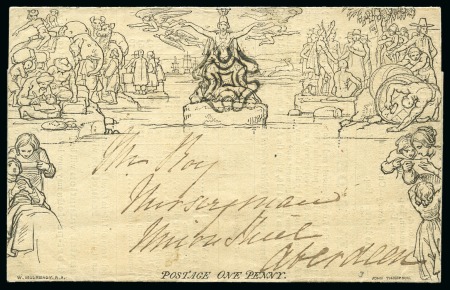 Mr Roy
Nurseryman
Union Street
Aberdeen
POSTAGE ONE PENNY.
W. MULREADY, R.A.
3
JOHN THOMPSON